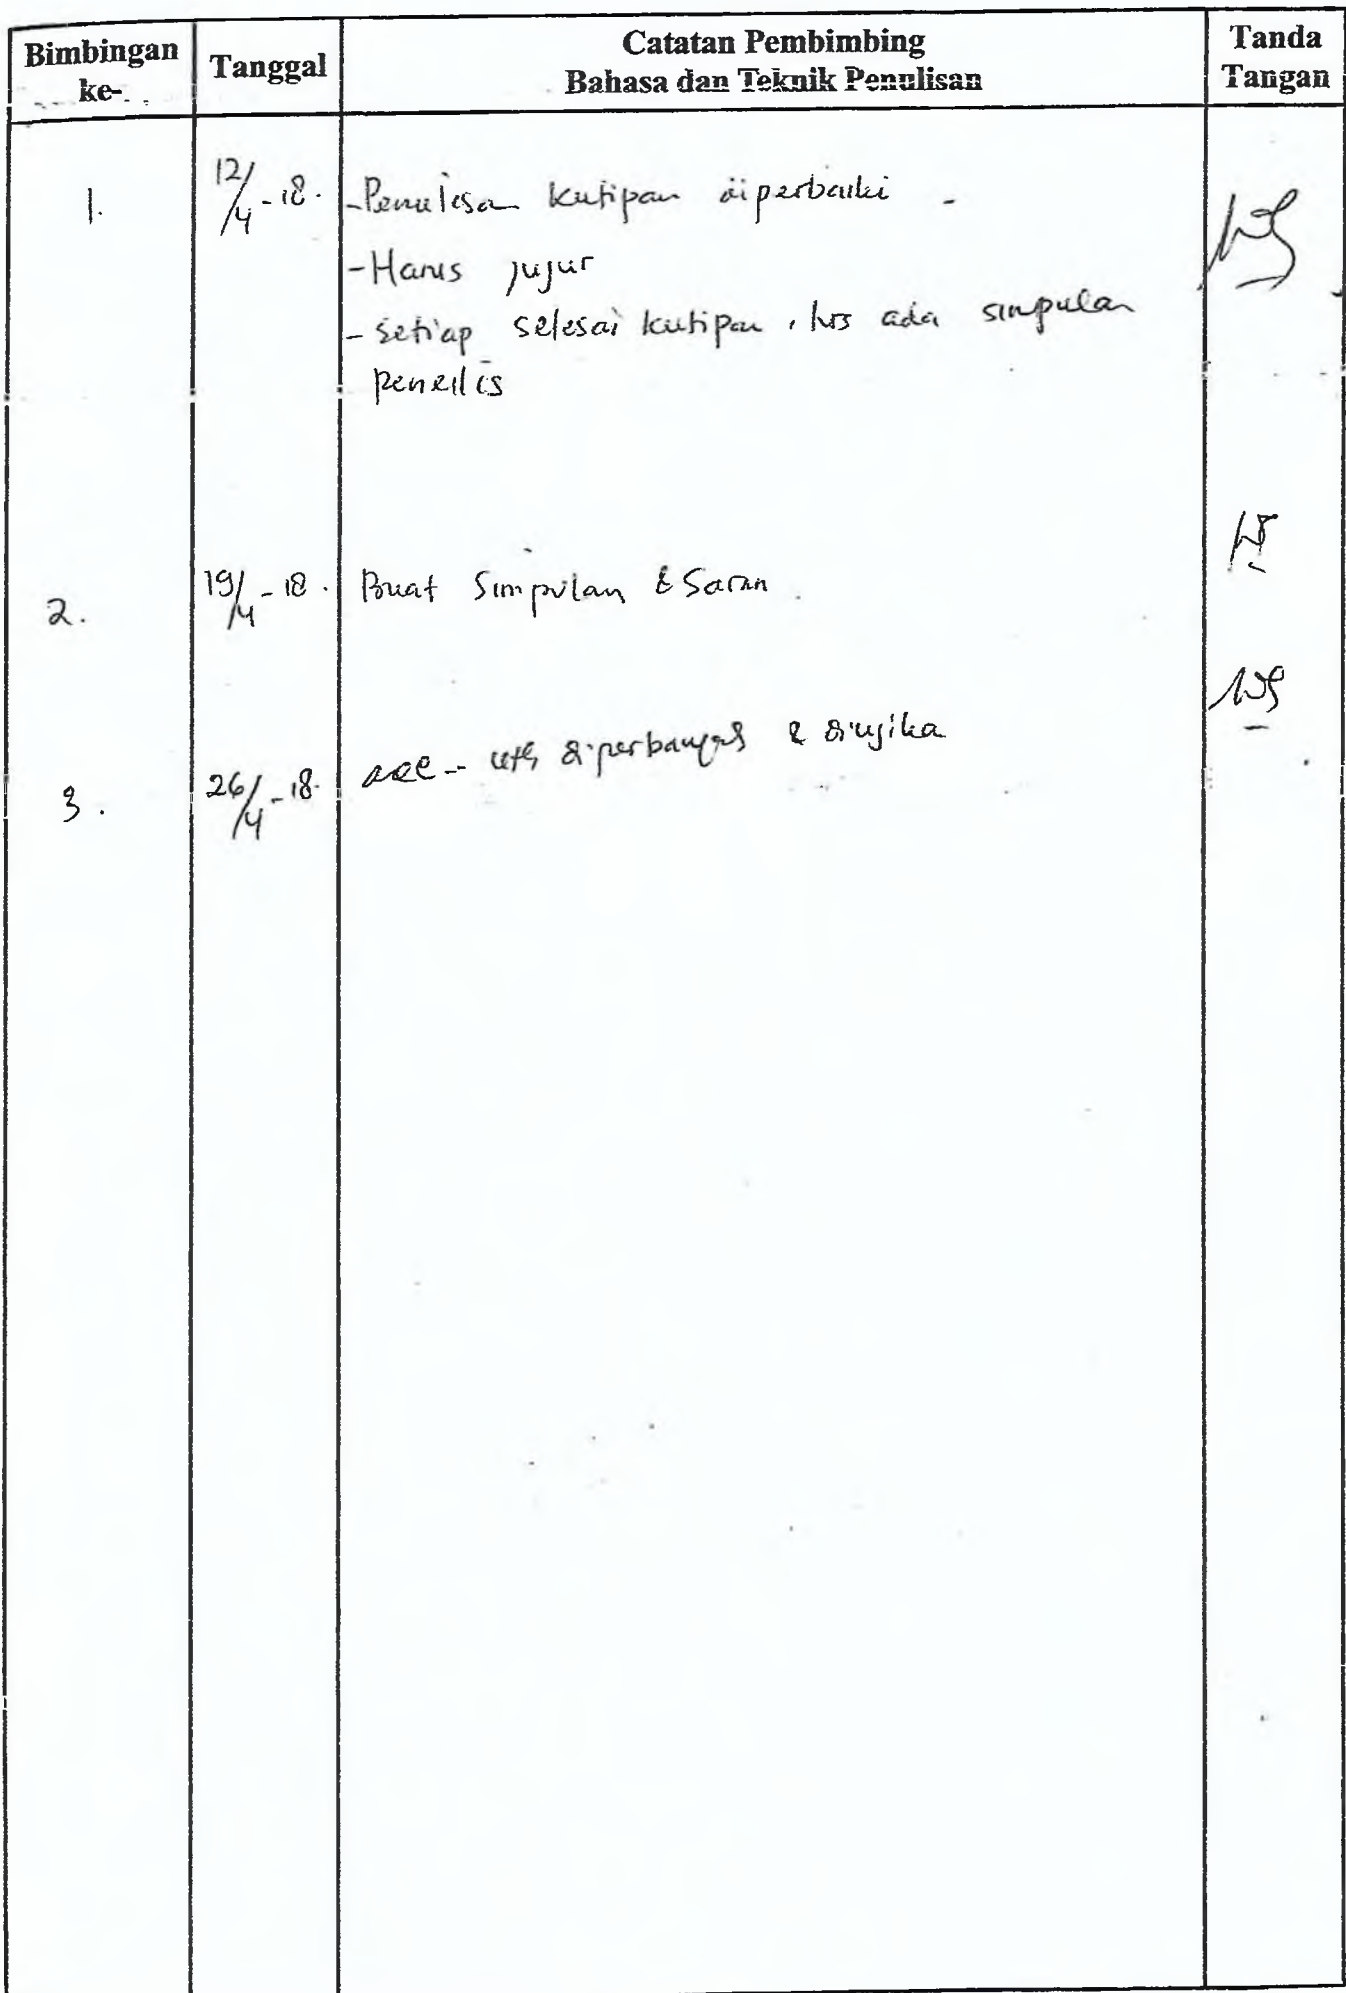 Bimbingan ke-
Tanggal
Catatan Pembimbing
Bahasa dan Teknik Penulisan
Tanda Tangan
1.
12/4-18.
-Penulisan kutipan diperbaiki -
-Harus jujur
-Setiap selesai kutipan, hrs ada simpulan
penulis
2.
19/4-18.
Buat Simpulan & Saran.
3.
26/4-18.
acc - utk diperbanyak & diujika